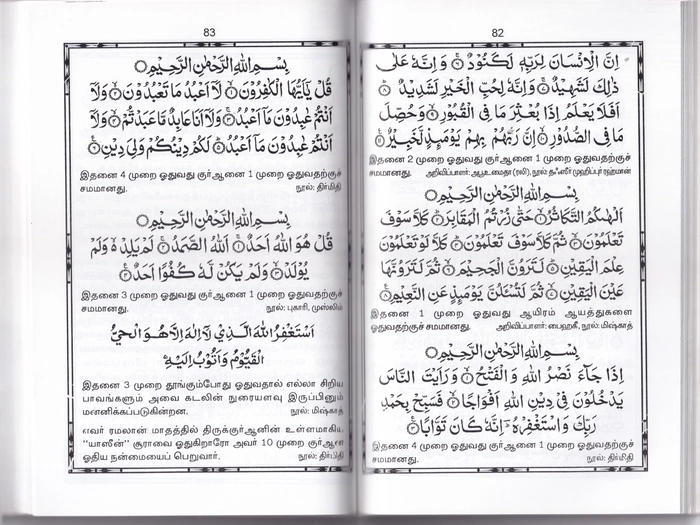 82
اِنَّ الْاِنْسَانَ لِرَبِّهٖ لَكَنُوْدٌ ۚ وَ اِنَّهٗ عَلٰى
ذٰلِكَ لَشَهِيْدٌ ۚ وَ اِنَّهٗ لِحُبِّ الْخَيْرِ لَشَدِيْدٌ ؕ
اَفَلَا يَعْلَمُ اِذَا بُعْثِرَ مَا فِى الْقُبُوْرِ ۙ وَحُصِّلَ
مَا فِى الصُّدُوْرِ ۙ اِنَّ رَبَّهُمْ بِهِمْ يَوْمَئِذٍ لَّخَبِيْرٌ
இதனை 2 முறை ஓதுவது குர்ஆனை 1 முறை ஓதுவதற்குச்
சமமானது. அறிவிப்பாளர்: அபூஉமைதா (ரலி), நூல்: தஃஸீர் முஹிப்புர் ரஹ்மான்
بِسْمِ اللهِ الرَّحْمٰنِ الرَّحِيْمِ
اَلْهٰىكُمُ التَّكَاثُرُ ۙ حَتّٰى زُرْتُمُ الْمَقَابِرَ ؕ كَلَّا سَوْفَ
تَعْلَمُوْنَ ۙ ثُمَّ كَلَّا سَوْفَ تَعْلَمُوْنَ ؕ كَلَّا لَوْ تَعْلَمُوْنَ
عِلْمَ الْيَقِيْنِ ؕ لَتَرَوُنَّ الْجَحِيْمَ ۙ ثُمَّ لَتَرَوُنَّهَا
عَيْنَ الْيَقِيْنِ ۙ ثُمَّ لَتُسْئَلُنَّ يَوْمَئِذٍ عَنِ النَّعِيْمِ
இதனை 1 முறை ஓதுவது ஆயிரம் ஆயத்துகளை
ஓதுவதற்குச் சமமானது. அறிவிப்பாளர்: பைஹகீ, நூல்: மிஷ்காத்
بِسْمِ اللهِ الرَّحْمٰنِ الرَّحِيْمِ
اِذَا جَآءَ نَصْرُ اللهِ وَ الْفَتْحُ ۙ وَ رَاَيْتَ النَّاسَ
يَدْخُلُوْنَ فِىْ دِيْنِ اللهِ اَفْوَاجًا ۙ فَسَبِّحْ بِحَمْدِ
رَبِّكَ وَ اسْتَغْفِرْهُ ؔ اِنَّهٗ كَانَ تَوَّابًا
இதனை 4 முறை ஓதுவது குர்ஆனை 1 முறை ஓதுவதற்குச்
சமமானது. நூல்: திர்மிதி
83
بِسْمِ اللهِ الرَّحْمٰنِ الرَّحِيْمِ
قُلْ يٰٓاَيُّهَا الْكٰفِرُوْنَ ۙ لَاۤ اَعْبُدُ مَا تَعْبُدُوْنَ ۙ وَلَاۤ
اَنْتُمْ عٰبِدُوْنَ مَاۤ اَعْبُدُ ۚ وَلَاۤ اَنَا عَابِدٌ مَّا عَبَدْتُّمْ ۙ وَلَاۤ
اَنْتُمْ عٰبِدُوْنَ مَاۤ اَعْبُدُ ؕ لَكُمْ دِيْنُكُمْ وَلِىَ دِيْنِ
இதனை 4 முறை ஓதுவது குர்ஆனை 1 முறை ஓதுவதற்குச்
சமமானது. நூல்: திர்மிதி
بِسْمِ اللهِ الرَّحْمٰنِ الرَّحِيْمِ
قُلْ هُوَ اللهُ اَحَدٌ ۚ اَللهُ الصَّمَدُ ۚ لَمْ يَلِدْ ۙ وَلَمْ
يُوْلَدْ ۙ وَلَمْ يَكُنْ لَّهٗ كُفُوًا اَحَدٌ
இதனை 3 முறை ஓதுவது குர்ஆனை 1 முறை ஓதுவதற்குச்
சமமானது. நூல்: புகாரி, முஸ்லிம்
اَسْتَغْفِرُ اللهَ الَّذِيْ لَا اِلٰهَ اِلَّا هُوَ الْحَيُّ
الْقَيُّوْمُ وَ اَتُوْبُ اِلَيْهِ
இதனை 3 முறை தூங்கும்போது ஓதுவதால் எல்லா சிறிய
பாவங்களும் அவை கடலின் நுரையளவு இருப்பினும்
மன்னிக்கப்படுகின்றன. நூல்: மிஷ்காத்
எவர் ரமலான் மாதத்தில் திருக்குர்ஆனின் உள்ளமாகிய
"யாஸீன்" சூராவை ஓதுகிறாரோ அவர் 10 முறை குர்ஆன்
ஓதிய நன்மையைப் பெறுவார். நூல்: திர்மிதி